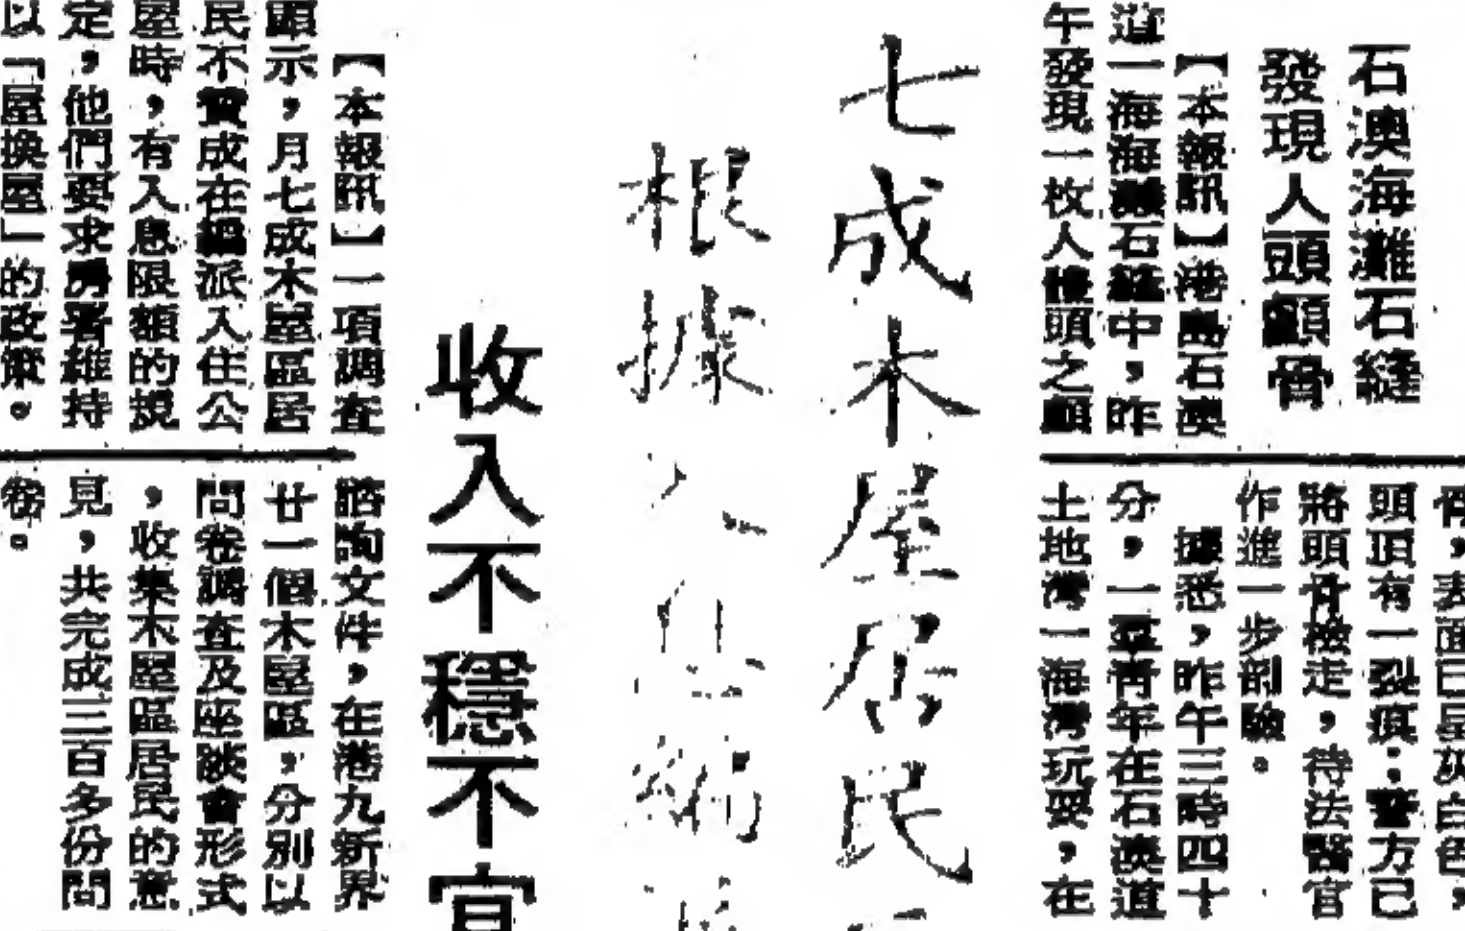 石澳海灘石縫
發現人頭顱骨
【本報訊】港島石澳
道一海海灘石縫中，昨
午發現一枚人體頭之顱
骨，表面已呈灰白色，
頭頂有一裂痕；警方已
將頭骨檢走，待法醫官
作進一步剖驗。
據悉，昨午三時四十
分，一羣青年在石澳道
土地灣一海灣玩耍，在
七成木屋居民
根據入住
收入不穩不宜
【本報訊】一項調查
顯示，月七成木屋區居
民不贊成在編派入住公
屋時，有入息限額的規
定，他們要求房署維持
以「屋換屋」的政策。
諮詢文件，在港九新界
廿一個木屋區，分別以
問卷調查及座談會形式
，收集木屋區居民的意
見，共完成三百多份問
卷。